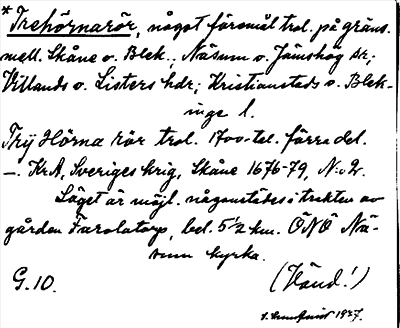 * Trehörnarör, något föremål trol. på gräns.
mell. Skåne o. Blek.; Näsum o. Jämshög sr;
Villands o. Listers hdr; Kristianstads o. Blek-
inge l.
Trÿ Hörna rör trol. 1700-tal. förra del.
—. KrA, Sveriges krig, Skåne 1676-79, N:o 2.
Läget är möjl. någonstädes i trakten av
gården Farolatorp, bel. 5 1/2 km. ÖNÖ Nä-
sum kyrka.
G. 10. (Vänd!)
1927.